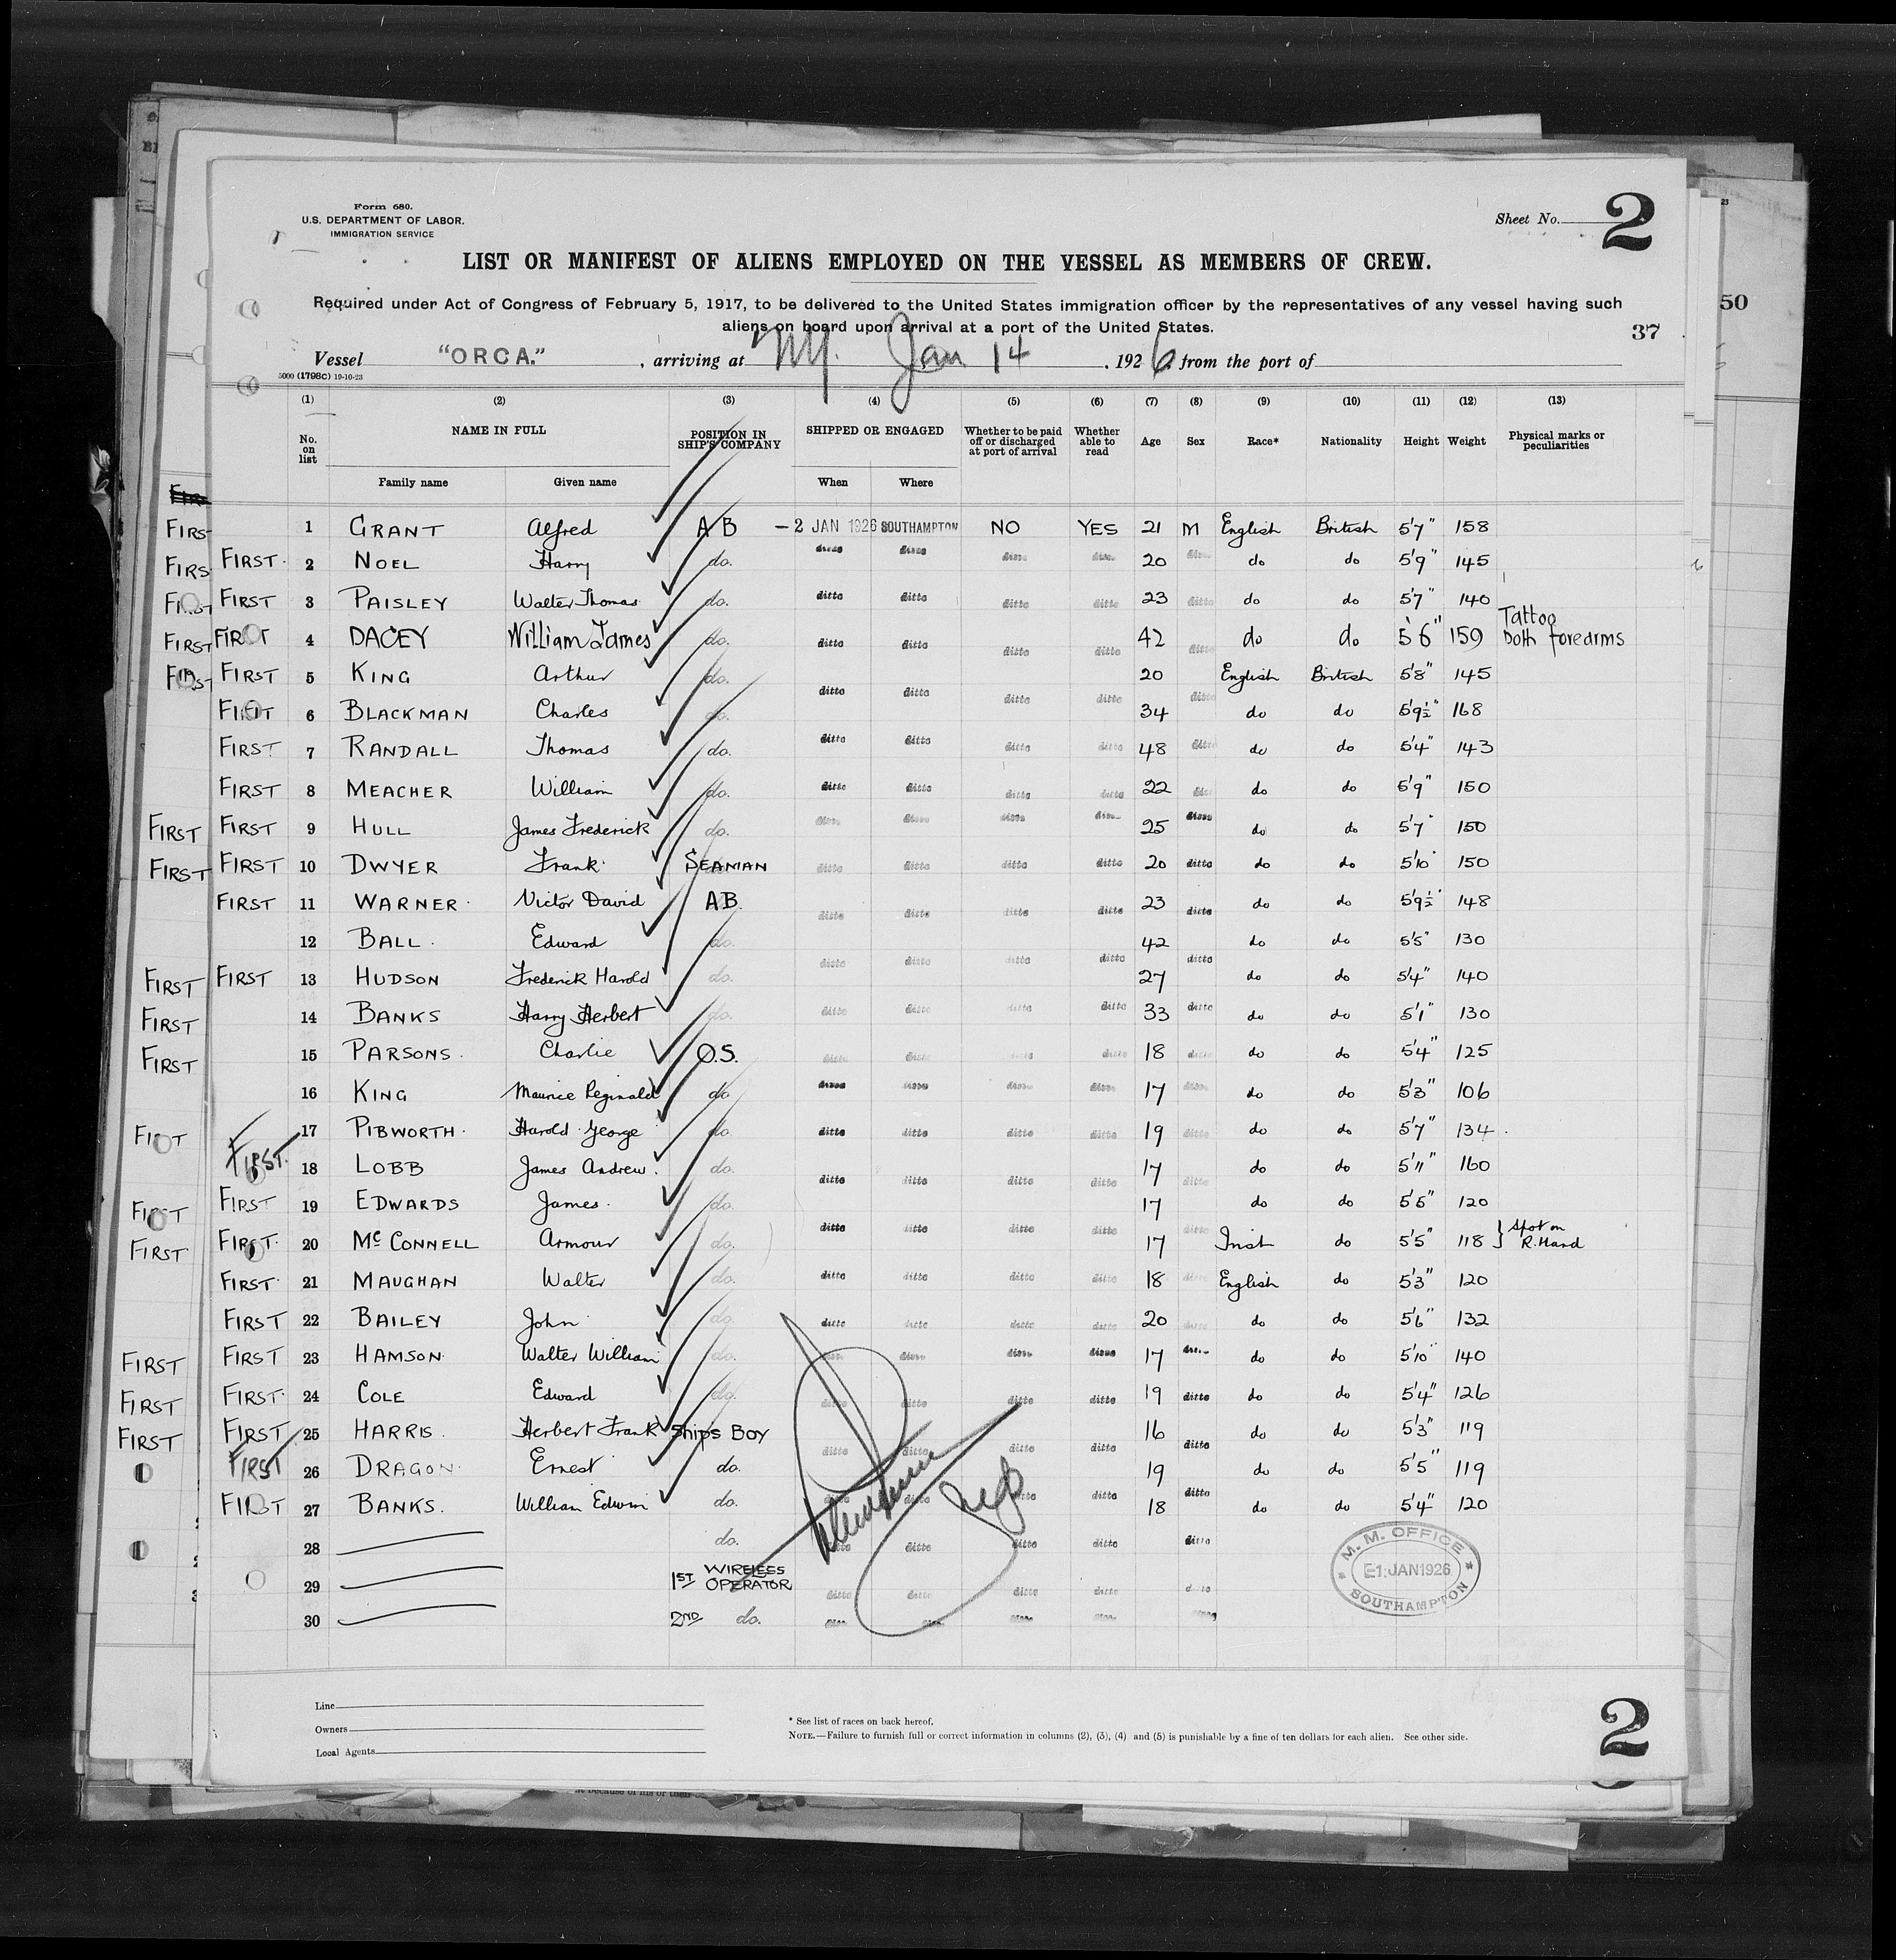 Form 680.
U.S. DEPARTMENT OF LABOR.
IMMIGRATION SERVICE
Sheet No. 2
LIST OR MANIFEST OF ALIENS EMPLOYED ON THE VESSEL AS MEMBERS OF CREW.
Required under Act of Congress of February 5, 1917, to be delivered to the United States immigration officer by the representatives of any vessel having such
aliens on board upon arrival at a port of the United States.
37
50
Vessel "ORCA." , arriving at NY. Jan 14 , 1926 from the port of
5000 (1798C) 19-10-23
(1) (2) (3) (4) (5) (6) (7) (8) (9) (10) (11) (12) (13)
No. on list NAME IN FULL POSITION IN SHIP'S COMPANY SHIPPED OR ENGAGED Whether to be paid off or discharged at port of arrival Whether able to read Age Sex Race* Nationality Height Weight Physical marks or peculiarities
Family name Given name When Where
1 GRANT Alfred AB -2 JAN 1926 SOUTHAMPTON NO YES 21 M English British 5'7" 158
FIRST 2 NOEL Harry do. ditto ditto ditto ditto 20 ditto do do 5'9" 145
FIRST 3 PAISLEY Walter Thomas do. ditto ditto ditto ditto 23 ditto do do 5'7" 140
FIRST 4 DACEY William James do. ditto ditto ditto ditto 42 ditto do do 5'6" 159 Tattoo Both forearms
FIRST 5 KING Arthur do. ditto ditto ditto ditto 20 ditto English British 5'8" 145
FIRST 6 BLACKMAN Charles do. 34 do do 5'9½" 168
FIRST 7 RANDALL Thomas do. ditto ditto ditto ditto 48 ditto do do 5'4" 143
FIRST 8 MEACHER William do. ditto ditto ditto ditto 22 ditto do do 5'9" 150
FIRST FIRST 9 HULL James Frederick do. ditto ditto ditto ditto 25 ditto do do 5'7" 150
FIRST FIRST 10 DWYER Frank SEAMAN ditto ditto ditto ditto 20 ditto do do 5'10" 150
FIRST 11 WARNER Victor David AB. ditto ditto ditto ditto 23 ditto do do 5'9½" 148
12 BALL Edward do. ditto ditto ditto ditto 42 ditto do do 5'5" 130
FIRST FIRST 13 HUDSON Frederick Harold do. 27 do do 5'4" 140
FIRST 14 BANKS Harry Herbert do. ditto ditto ditto ditto 33 ditto do do 5'1" 130
FIRST 15 PARSONS. Charlie O.S. ditto ditto ditto ditto 18 ditto do do 5'4" 125
16 KING Maurice Reginald do ditto ditto ditto ditto 17 ditto do do 5'3" 106
17 PIBWORTH Harold George do. ditto ditto ditto ditto 19 ditto do do 5'7" 134
FIRST. 18 LOBB James Andrew. do. ditto ditto ditto ditto 17 ditto do do 5'11" 160
FIRST 19 EDWARDS James. do. 17 do do 5'5" 120
FIRST FIRST 20 McCONNELL Armour do. ditto ditto ditto ditto 17 ditto Irish do 5'5" 118 } Spot on R. Hand
FIRST 21 MAUGHAN Walter do. ditto ditto ditto ditto 18 ditto English do 5'3" 120
FIRST 22 BAILEY John do. ditto ditto ditto ditto 20 ditto do do 5'6" 132
FIRST FIRST 23 HAMSON Walter William do. ditto ditto ditto ditto 17 ditto do do 5'10" 140
FIRST FIRST 24 COLE Edward do. ditto ditto ditto ditto 19 ditto do do 5'4" 126
FIRST FIRST 25 HARRIS. Herbert Frank Ships BOY ditto ditto ditto ditto 16 ditto do do 5'3" 119
FIRST 26 DRAGON Ernest do. 19 do do 5'5" 119
FIRST 27 BANKS. William Edwin do. ditto ditto ditto ditto 18 ditto do do 5'4" 120
28 do. ditto ditto ditto ditto ditto
29 1ST WIRELESS OPERATOR ditto ditto ditto ditto ditto
30 2ND do. ditto ditto ditto ditto ditto
M. M. OFFICE
-1 JAN 1926
SOUTHAMPTON
Line
Owners
Local Agents
* See list of races on back hereof.
NOTE.—Failure to furnish full or correct information in columns (2), (3), (4) and (5) is punishable by a fine of ten dollars for each alien. See other side.
2